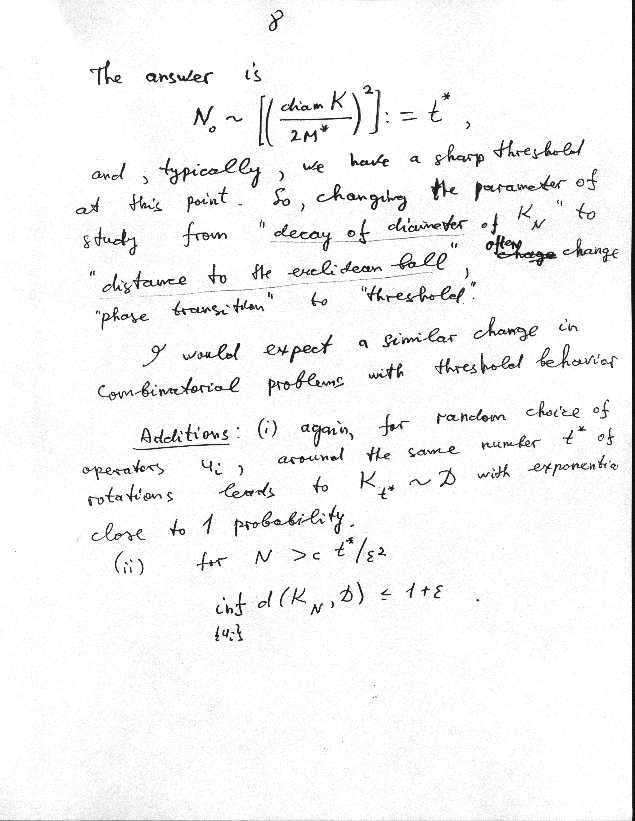 8
The answer is
N₀ ~ [( diam K / 2M* )²] := t* ,
and , typically , we have a sharp threshold
at this point. So, changing the parameter of
study from "decay of diameter of K_N" to
"distance to the euclidean ball", often change
"phase transition" to "threshold".
I would expect a similar change in
Combinatorial problems with threshold behavior
Additions: (i) again, for random choice of
operators u_i , around the same number t* of
rotations leads to K_t* ~ D with exponentia
close to 1 probability.
(ii) for N > c t*/ε²
inf d(K_N, D) ≤ 1+ε .
{u_i}